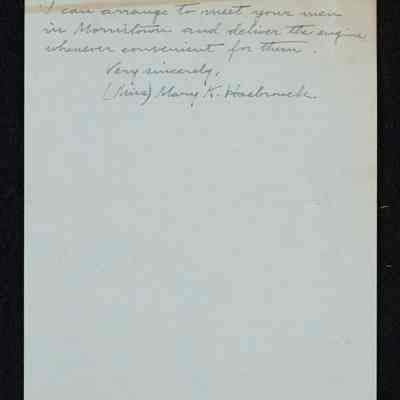 I can arrange to meet your men
in Morristown and deliver the engine
whenever convenient for them.
Very sincerely,
(Miss) Mary K. Hasbrouck.